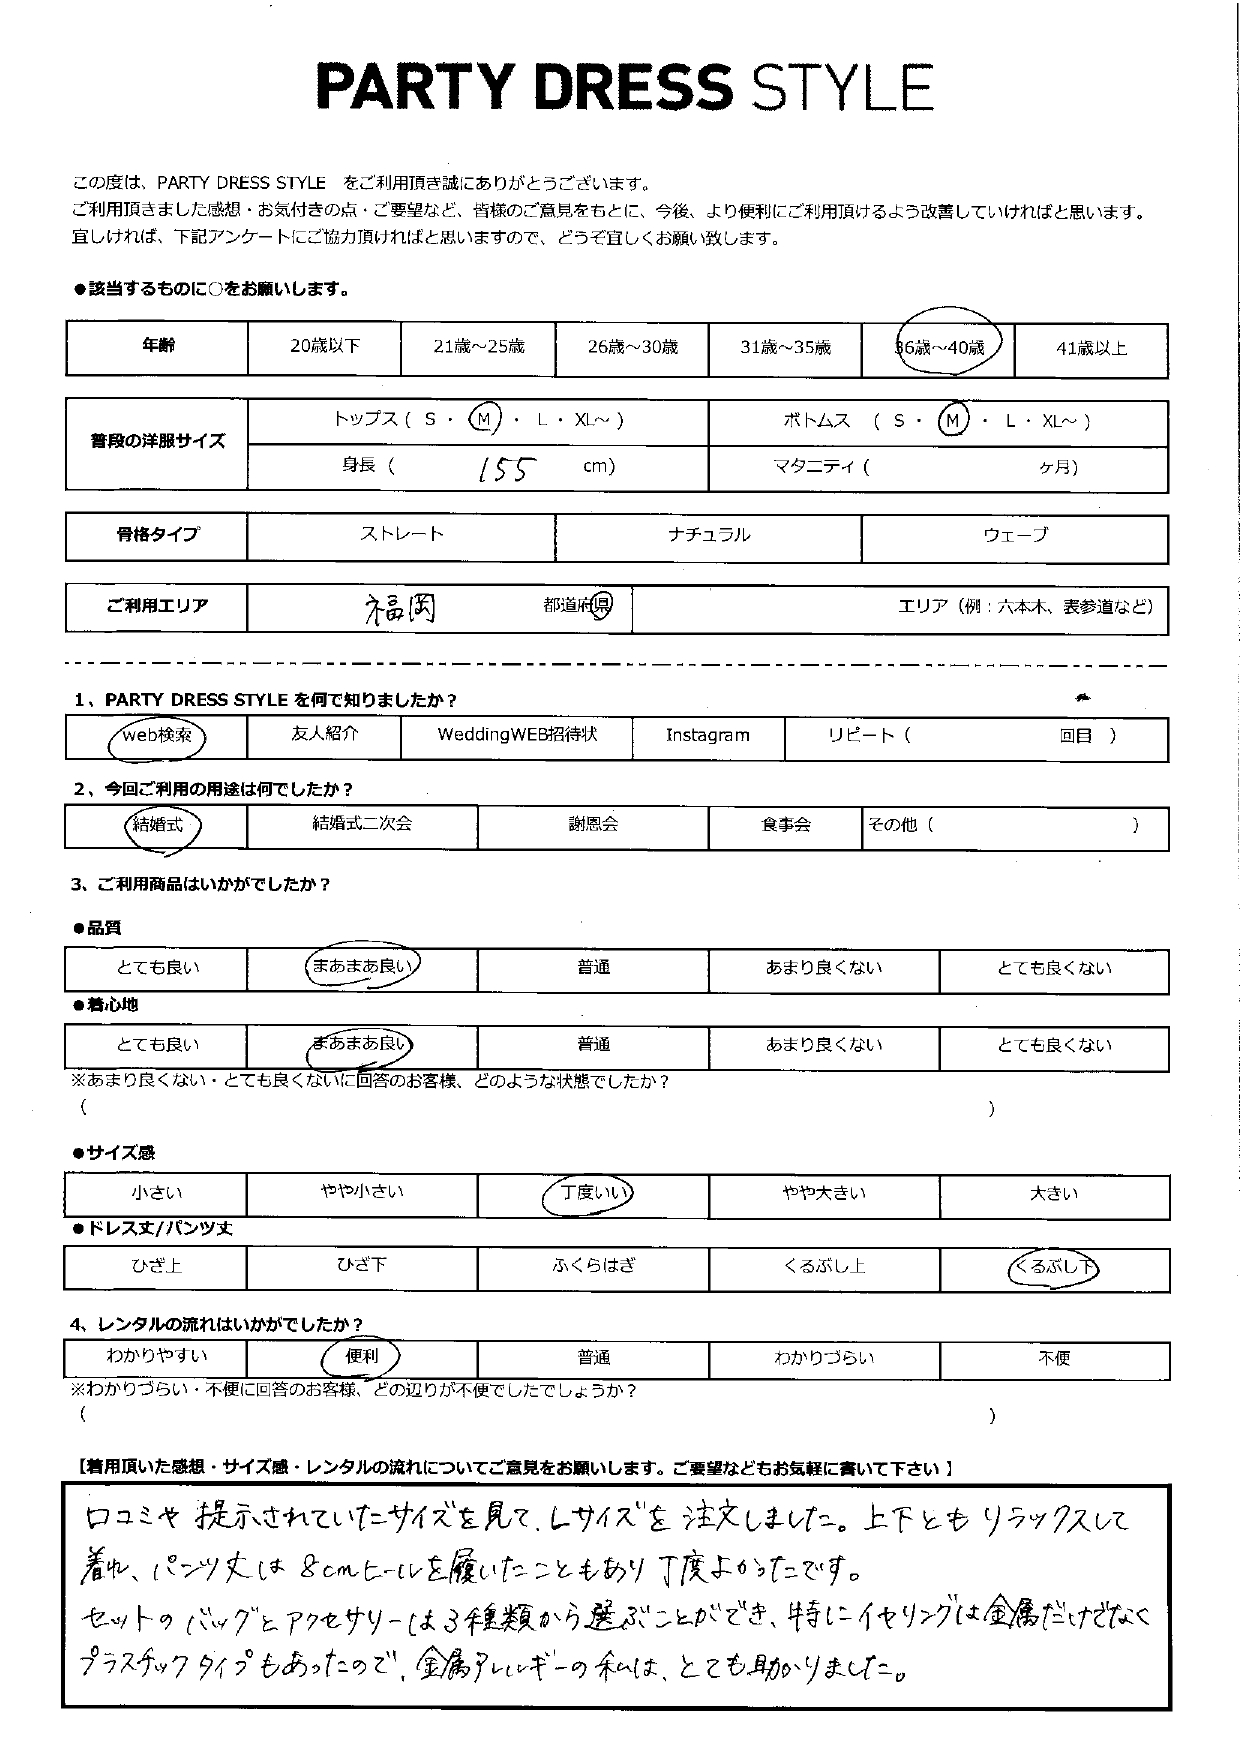 PARTY DRESS STYLE
この度は、PARTY DRESS STYLE　をご利用頂き誠にありがとうございます。
ご利用頂きました感想・お気付きの点・ご要望など、皆様のご意見をもとに、今後、より便利にご利用頂けるよう改善していければと思います。
宜しければ、下記アンケートにご協力頂ければと思いますので、どうぞ宜しくお願い致します。
●該当するものに○をお願いします。
年齢 20歳以下 21歳～25歳 26歳～30歳 31歳～35歳 36歳～40歳 41歳以上
普段の洋服サイズ トップス ( S ・ M ・ L ・ XL～ ) ボトムス ( S ・ M ・ L ・ XL～ )
身長 ( 155 cm) マタニティ ( ヶ月)
骨格タイプ ストレート ナチュラル ウェーブ
ご利用エリア 福岡 都道府県 エリア（例：六本木、表参道など）
1、PARTY DRESS STYLE を何で知りましたか？
web検索 友人紹介 WeddingWEB招待状 Instagram リピート ( 回目 )
2、今回ご利用の用途は何でしたか？
結婚式 結婚式二次会 謝恩会 食事会 その他 ( )
3、ご利用商品はいかがでしたか？
●品質
とても良い まあまあ良い 普通 あまり良くない とても良くない
●着心地
とても良い まあまあ良い 普通 あまり良くない とても良くない
※あまり良くない・とても良くないに回答のお客様、どのような状態でしたか？
( )
●サイズ感
小さい やや小さい 丁度いい やや大きい 大きい
●ドレス丈/パンツ丈
ひざ上 ひざ下 ふくらはぎ くるぶし上 くるぶし下
4、レンタルの流れはいかがでしたか？
わかりやすい 便利 普通 わかりづらい 不便
※わかりづらい・不便に回答のお客様、どの辺りが不便でしたでしょうか？
( )
【着用頂いた感想・サイズ感・レンタルの流れについてご意見をお願いします。ご要望などもお気軽に書いて下さい】
口コミや提示されていたサイズを見て、Lサイズを注文しました。上下ともリラックスして
着れ、パンツ丈は8cmヒールを履いたこともあり丁度よかったです。
セットのバッグとアクセサリーは3種類から選ぶことができ、特にイヤリングは金属だけでなく
プラスチックタイプもあったので、金属アレルギーの私は、とても助かりました。